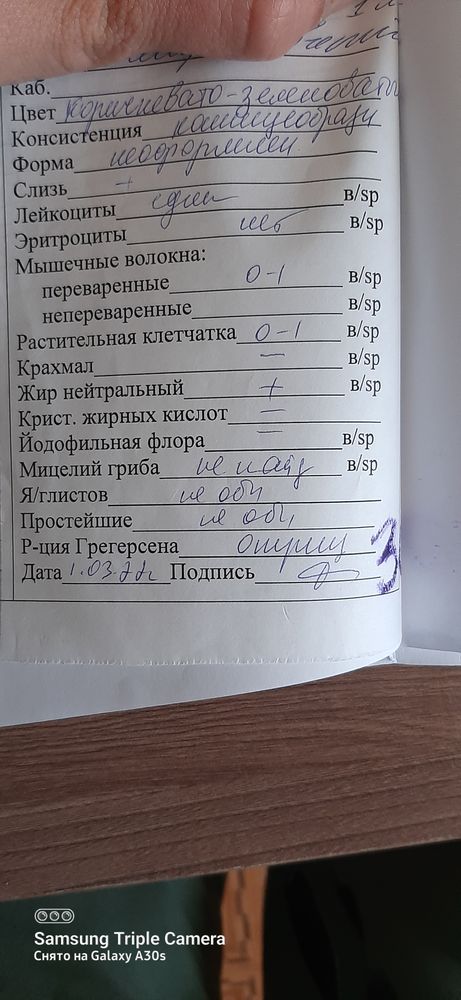 Каб.
Цвет коричневато-зеленоваты
Консистенция кашицеобразн
Форма неоформлен.
Слизь +
Лейкоциты един в/sp
Эритроциты нет в/sp
Мышечные волокна:
переваренные 0-1 в/sp
непереваренные в/sp
Растительная клетчатка 0-1 в/sp
Крахмал — в/sp
Жир нейтральный + в/sp
Крист. жирных кислот —
Йодофильная флора — в/sp
Мицелий гриба не найд в/sp
Я/глистов не обн
Простейшие не обн
Р-ция Грегерсена отриц
Дата 1.03.22г Подпись
Samsung Triple Camera
Снято на Galaxy A30s